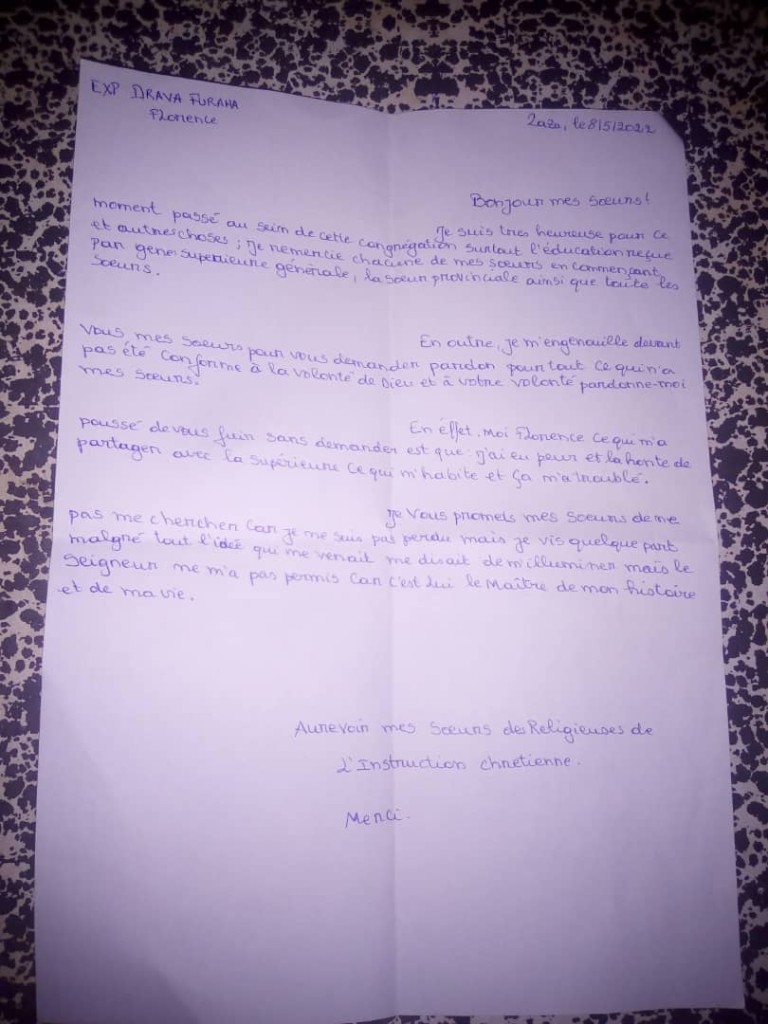 EXP DRAVA FURAHA
Florence
Zaza, le 8/5/2022
Bonjour mes sœurs!
Je suis tres heureuse pour ce
moment passé au sein de cette congrégation surtout l'éducation reçue
et autres choses ; je remercie chacune de mes sœurs en commençant
par gene superieure générale, la sœur provinciale ainsi que toute les
sœurs.
En outre, je m'engenouille devant
Vous mes sœurs pour vous demander pardon pour tout ce qui n'a
pas été conforme à la volonté de Dieu et à votre volonté pardonne-moi
mes sœurs.
En éffet. Moi Florence ce qui m'a
poussé de vous fuir sans demander est que : j'ai eu peur et la honte de
partager avec la supérieure ce qui m'habite et ça m'a troublé.
Je vous promets mes sœurs de me
pas me chercher car je me suis pas perdu mais je vis quelque part
malgré tout l'idée qui me venait me disait de m'illuminer mais le
Seigneur me m'a pas permis car c'est lui le Maître de mon histoire
et de ma vie.
Aurevoir mes sœurs des Religieuses de
L'Instruction chretienne.
Merci.